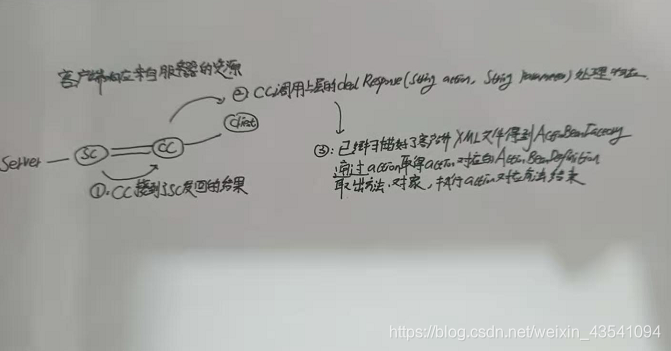 客户端响应来自服务器的资源
②CC调用上层的deal Response(String action, String parameter)处理响应
Client
SC
CC
Server
①:CC接到了SC发回的结果
③:已经扫描好了客户端XML文件得到ActionBeanFactory
通过action取得action对应的ActionBeanDefinition
取出方法、对象，执行action对应方法 结束
https://blog.csdn.net/weixin_43541094